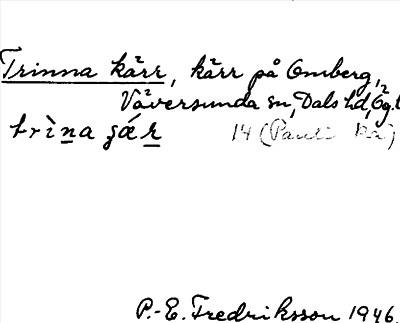 Trinna kärr, kärr på Omberg,
Väversunda sn, Dals hd, Ög.
trìna
14 (Pauli
P.-E. Fredriksson 1946.